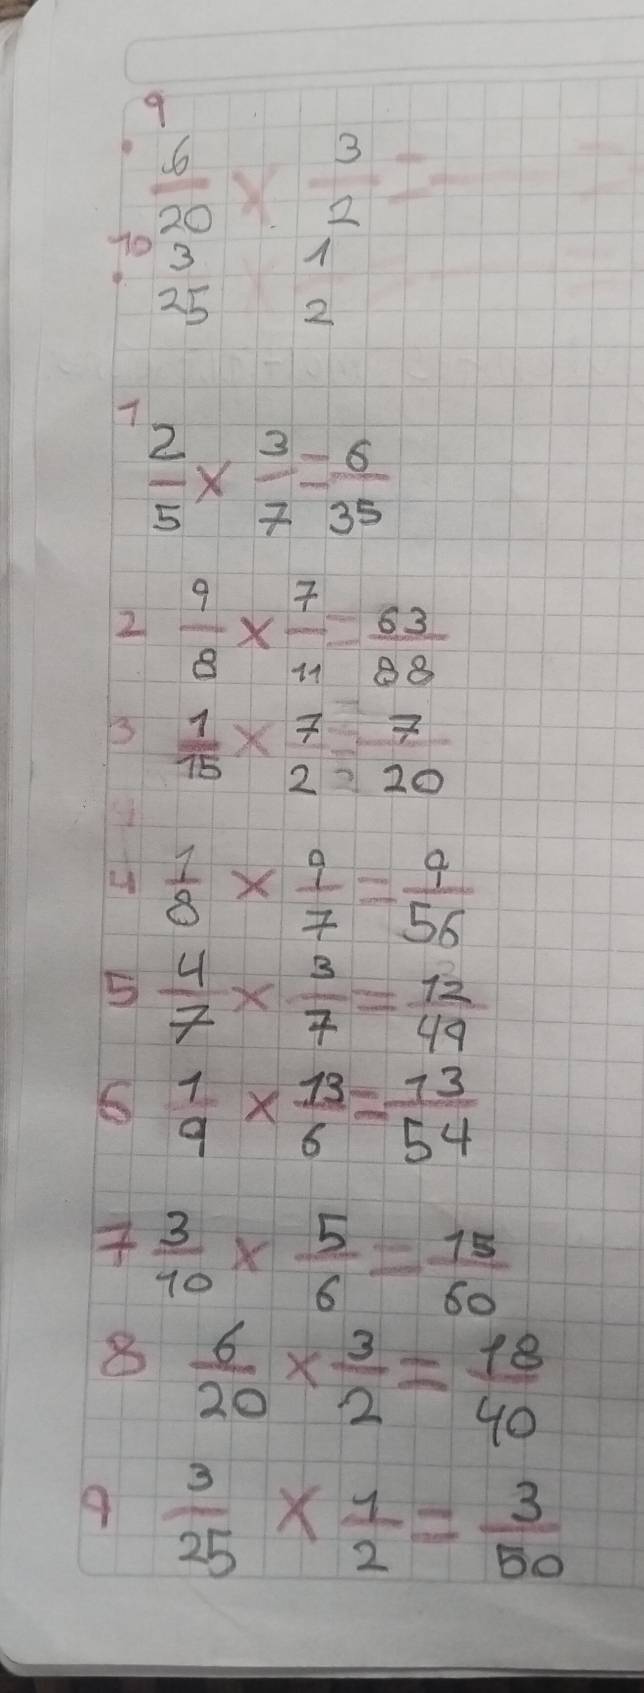 9
6/20 × 3/2 =
10 3/25 × 1/2 =
1
2/5 × 3/7 = 6/35
2 9/8 × 7/11 = 63/88
3 1/15 × 7/2 = 7/20
4 1/8 × 9/7 = 9/56
5 4/7 × 3/7 = 12/49
6 1/9 × 13/6 = 13/54
7 3/10 × 5/6 = 15/60
8 6/20 × 3/2 = 18/40
9 3/25 × 1/2 = 3/50